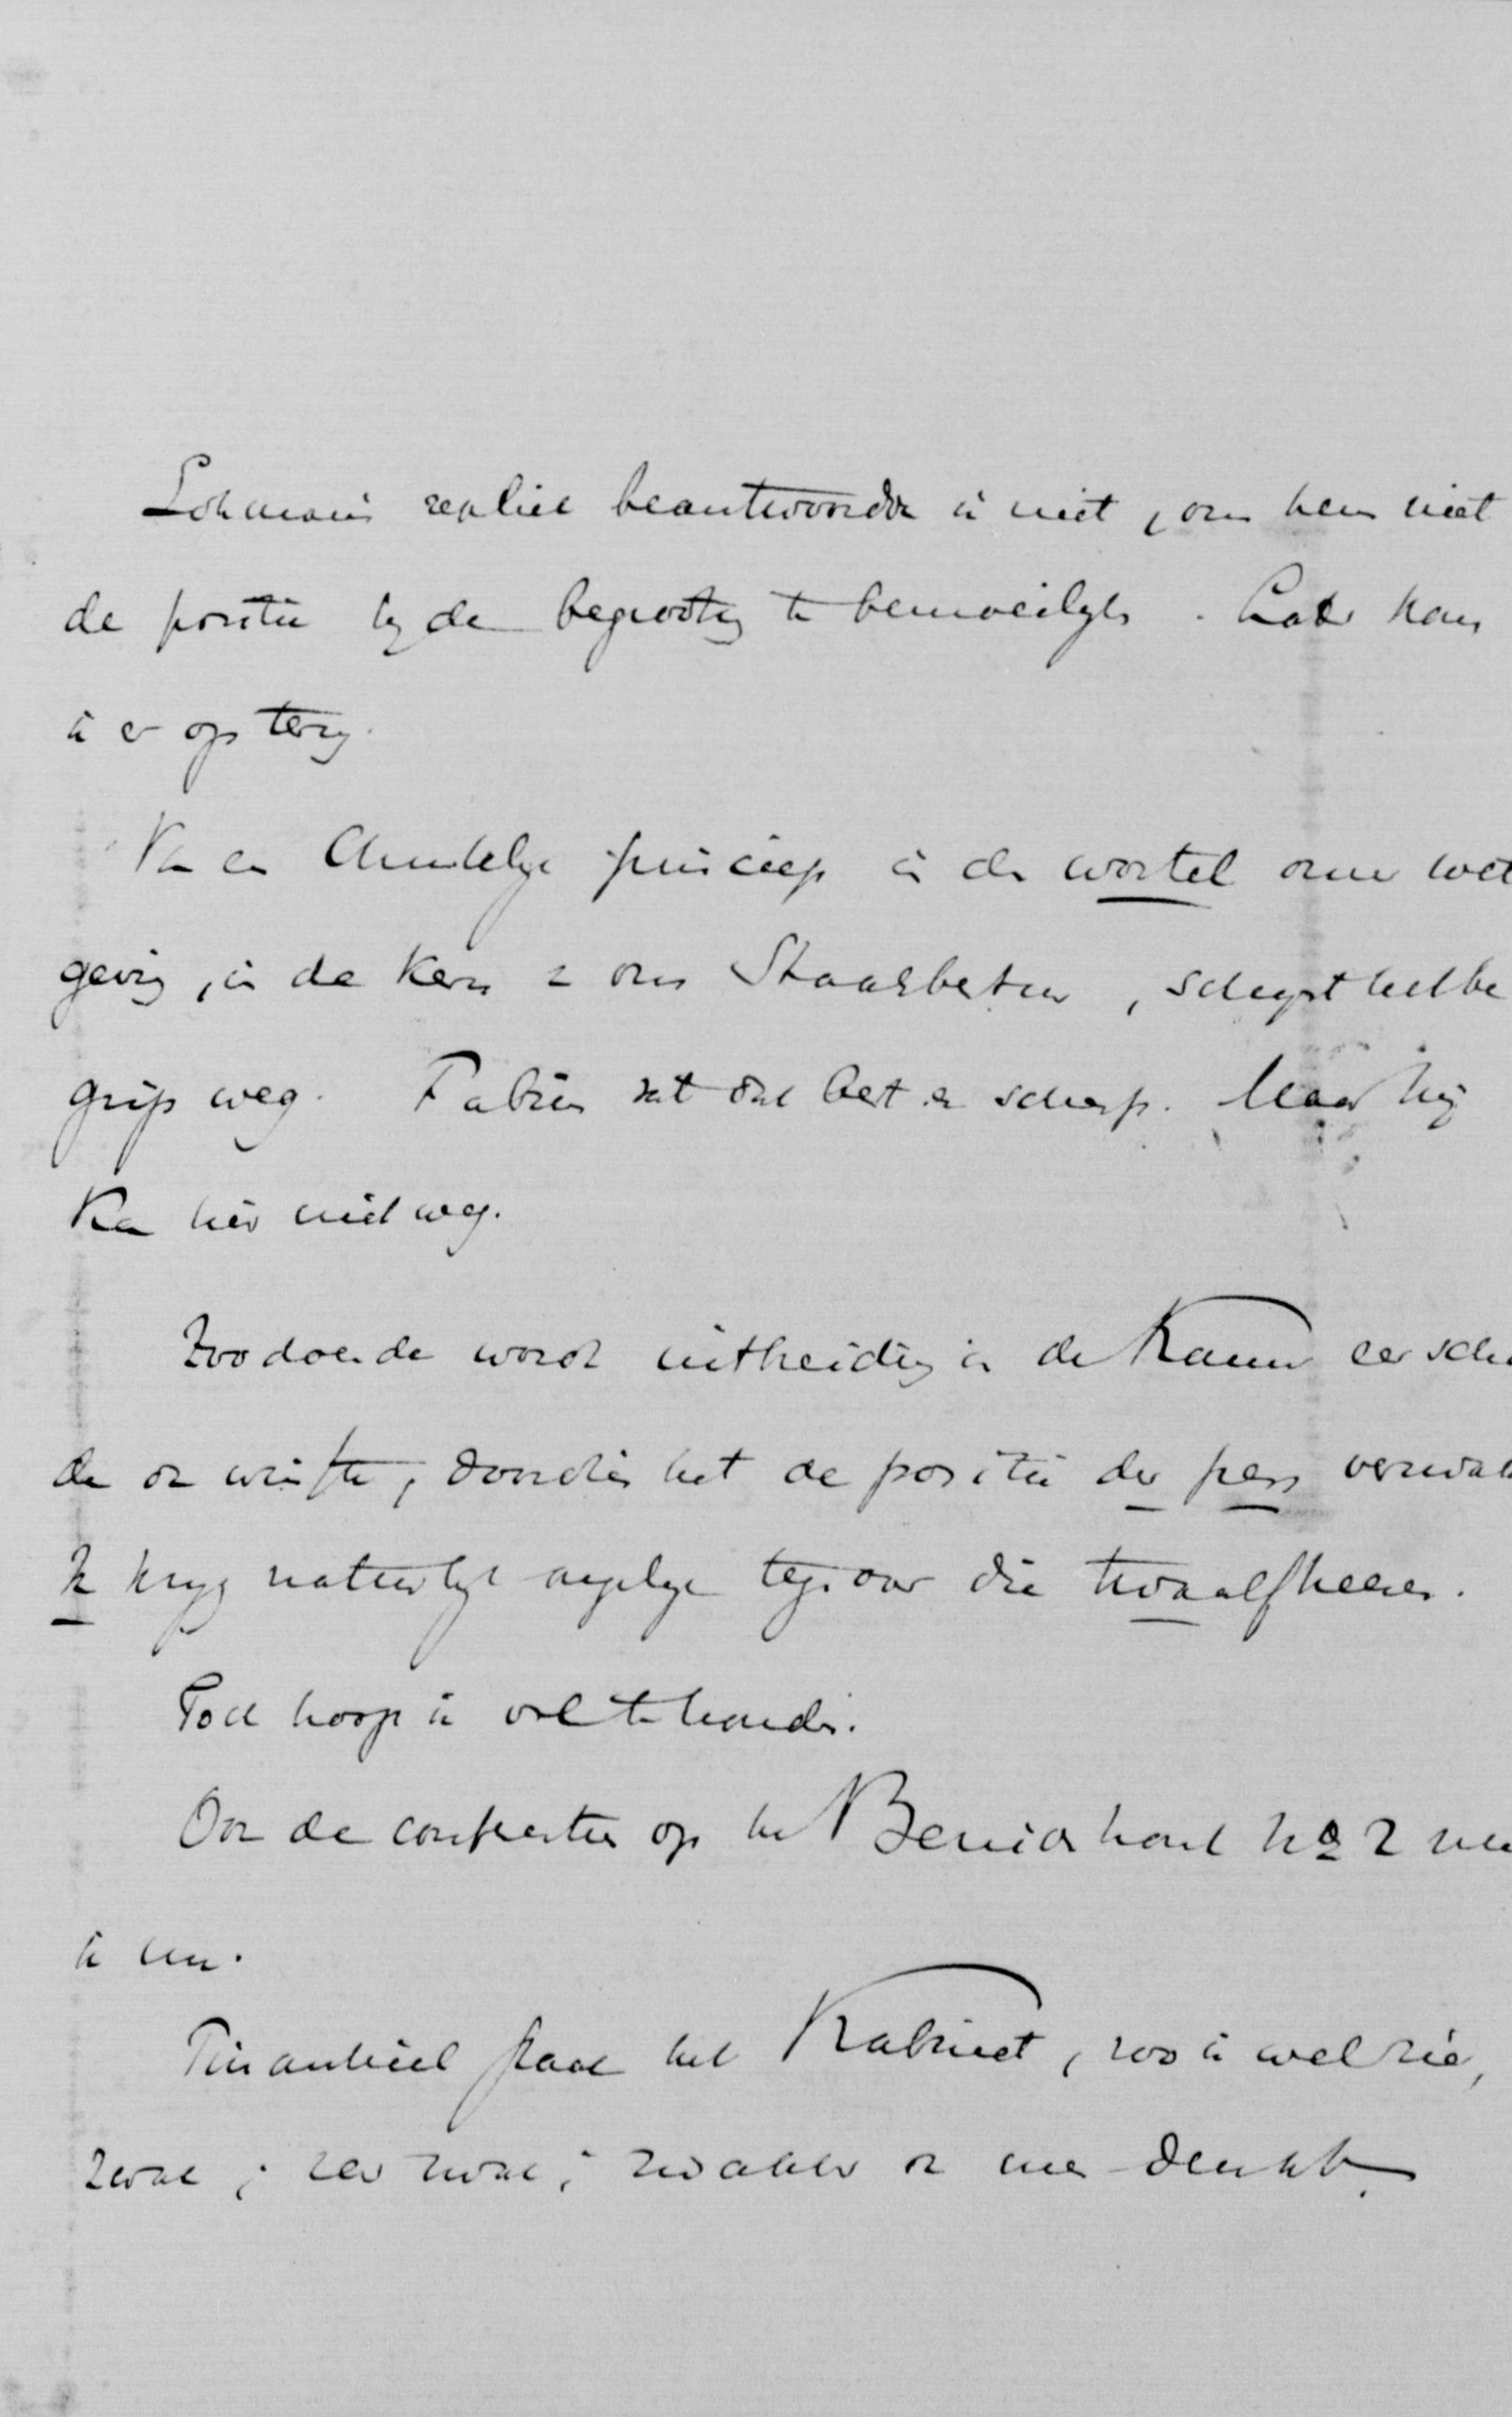 Lohman's repliek beantwoordde ik niet, om hem niet
de positie by de begrooting te bemoeilyken. Later kom
ik er op terug.
Van een Christelyk princiep in den wortel onzer wet
geving, in de kern van ons Staatsbestuur, schynt het be
grip weg. Fabius zat dat best en scherp. Maar hij
kan hier niet weg.
Zoodoende wordt uitbreiding in de Kamer eer scha
de dan winste, doordien het de positie der pers verzwakt
Ik kryg natuurlyk ongelyk tegenover die twaalf heeren.
Toch hoop ik vol te houden.
Ook de conferentie op het Bevierhout No 2
in
Financieel staat het Kabinet, zoo ik wel zie,
zwak; zeer zwak; zwakker dan men denkt.